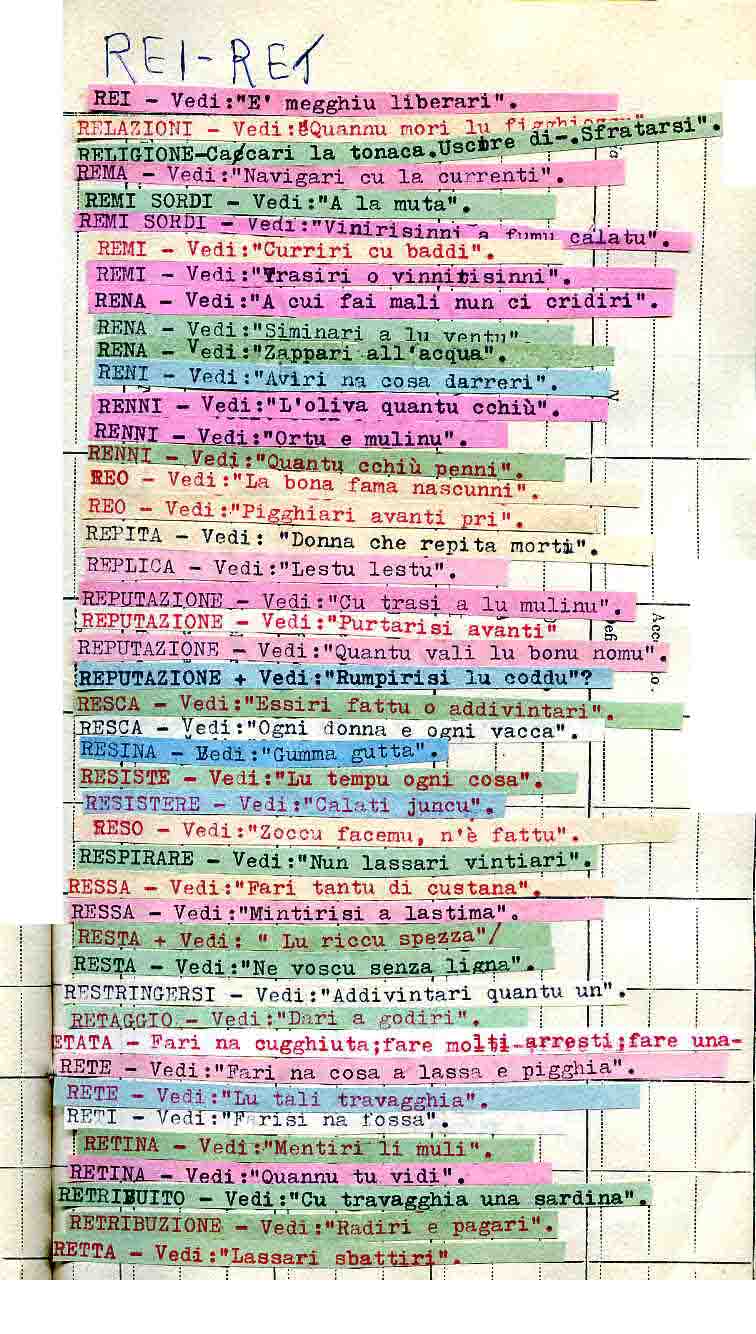 REI-RET
REI - Vedi:"E' megghiu liberari".
RELAZIONI - Vedi:"Quannu mori lu
RELIGIONE-Cascari la tonaca.Uscire di-.Sfratarsi".
REMA - Vedi:"Navigari cu la currenti".
REMI SORDI - Vedi:"A la muta".
REMI SORDI - Vedi:"Vinirisinni a fumu calatu".
REMI - Vedi:"Curriri cu baddi".
REMI - Vedi:"Trasiri o vinnitisinni".
RENA - Vedi:"A cui fai mali nun ci cridiri".
RENA - Vedi:"Siminari a lu ventu"
RENA - Vedi:"Zappari all'acqua".
RENI - Vedi:"Aviri na cosa darreri".
RENNI - Vedi:"L'oliva quantu cchiù".
RENNI - Vedi:"Ortu e mulinu".
RENNI - Vedi:"Quantu cchiù penni".
REO - Vedi:"La bona fama nascunni".
REO - Vedi:"Pigghiari avanti pri".
REPITA - Vedi: "Donna che repita morti".
REPLICA - Vedi:"Lestu lestu".
REPUTAZIONE - Vedi:"Cu trasi a lu mulinu".
REPUTAZIONE - Vedi:"Purtarisi avanti"
REPUTAZIONE - Vedi:"Quantu vali lu bonu nomu".
REPUTAZIONE + Vedi:"Rumpirisi lu coddu"?
RESCA - Vedi:"Essiri fattu o addivintari".
RESCA - Vedi:"Ogni donna e ogni vacca".
RESINA - Vedi:"Gumma gutta".
RESISTE - Vedi:"Lu tempu ogni cosa".
RESISTERE - Vedi:"Calati juncu".
RESO - Vedi:"Zoccu facemu, n'è fattu".
RESPIRARE - Vedi:"Nun lassari vintiari".
RESSA - Vedi:"Fari tantu di custana".
RESSA - Vedi:"Mintirisi a lastima".
RESTA + Vedi: " Lu riccu spezza"/
RESTA - Vedi:"Ne voscu senza ligna".
RESTRINGERSI - Vedi:"Addivintari quantu un".
RETAGGIO - Vedi:"Dari a godiri".
ETATA - Fari na cugghiuta;fare molti-arresti;fare una-
RETE - Vedi:"Fari na cosa a lassa e pigghia".
RETE - Vedi:"Lu tali travagghia".
RETI - Vedi:"Farisi na fossa".
RETINA - Vedi:"Mentiri li muli".
RETINA - Vedi:"Quannu tu vidi".
RETRIBUITO - Vedi:"Cu travagghia una sardina".
RETRIBUZIONE - Vedi:"Radiri e pagari".
RETTA - Vedi:"Lassari sbattiri".